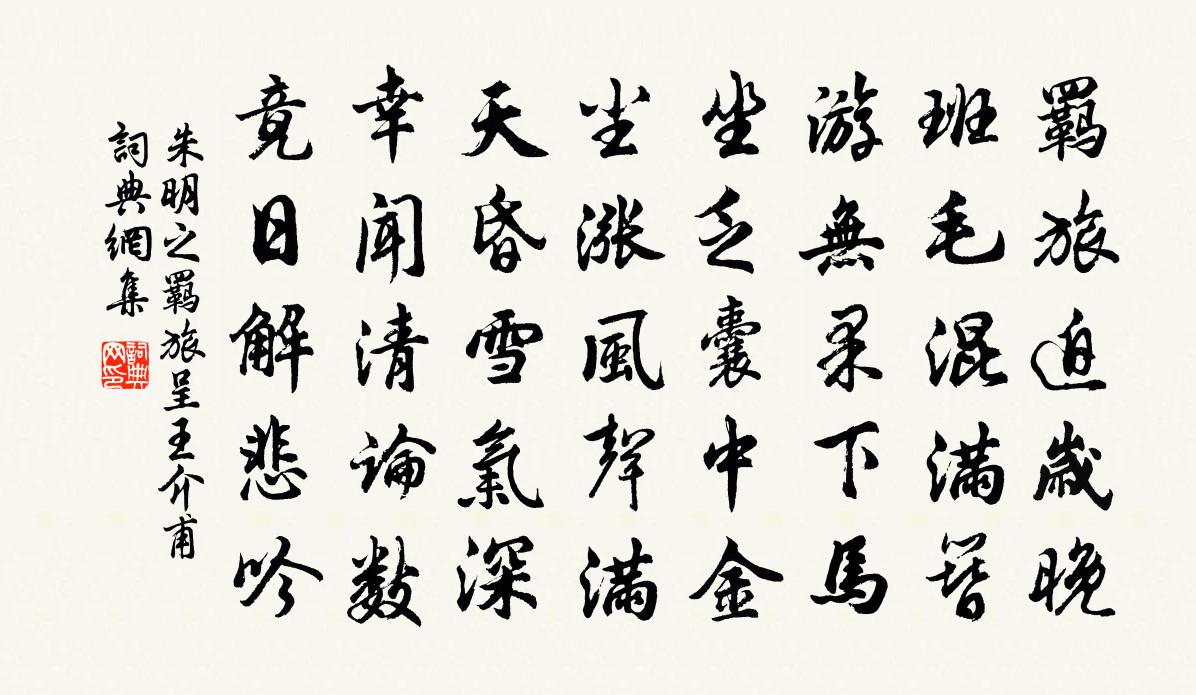 羈旅迫歲晚
班毛混滿簪
游無果下馬
坐乏囊中金
尘漲風聲滿
天昏雪氣深
幸聞清論數
竟日解悲吟
朱明之羈旅呈王介甫
詞典網集
詞典
网印